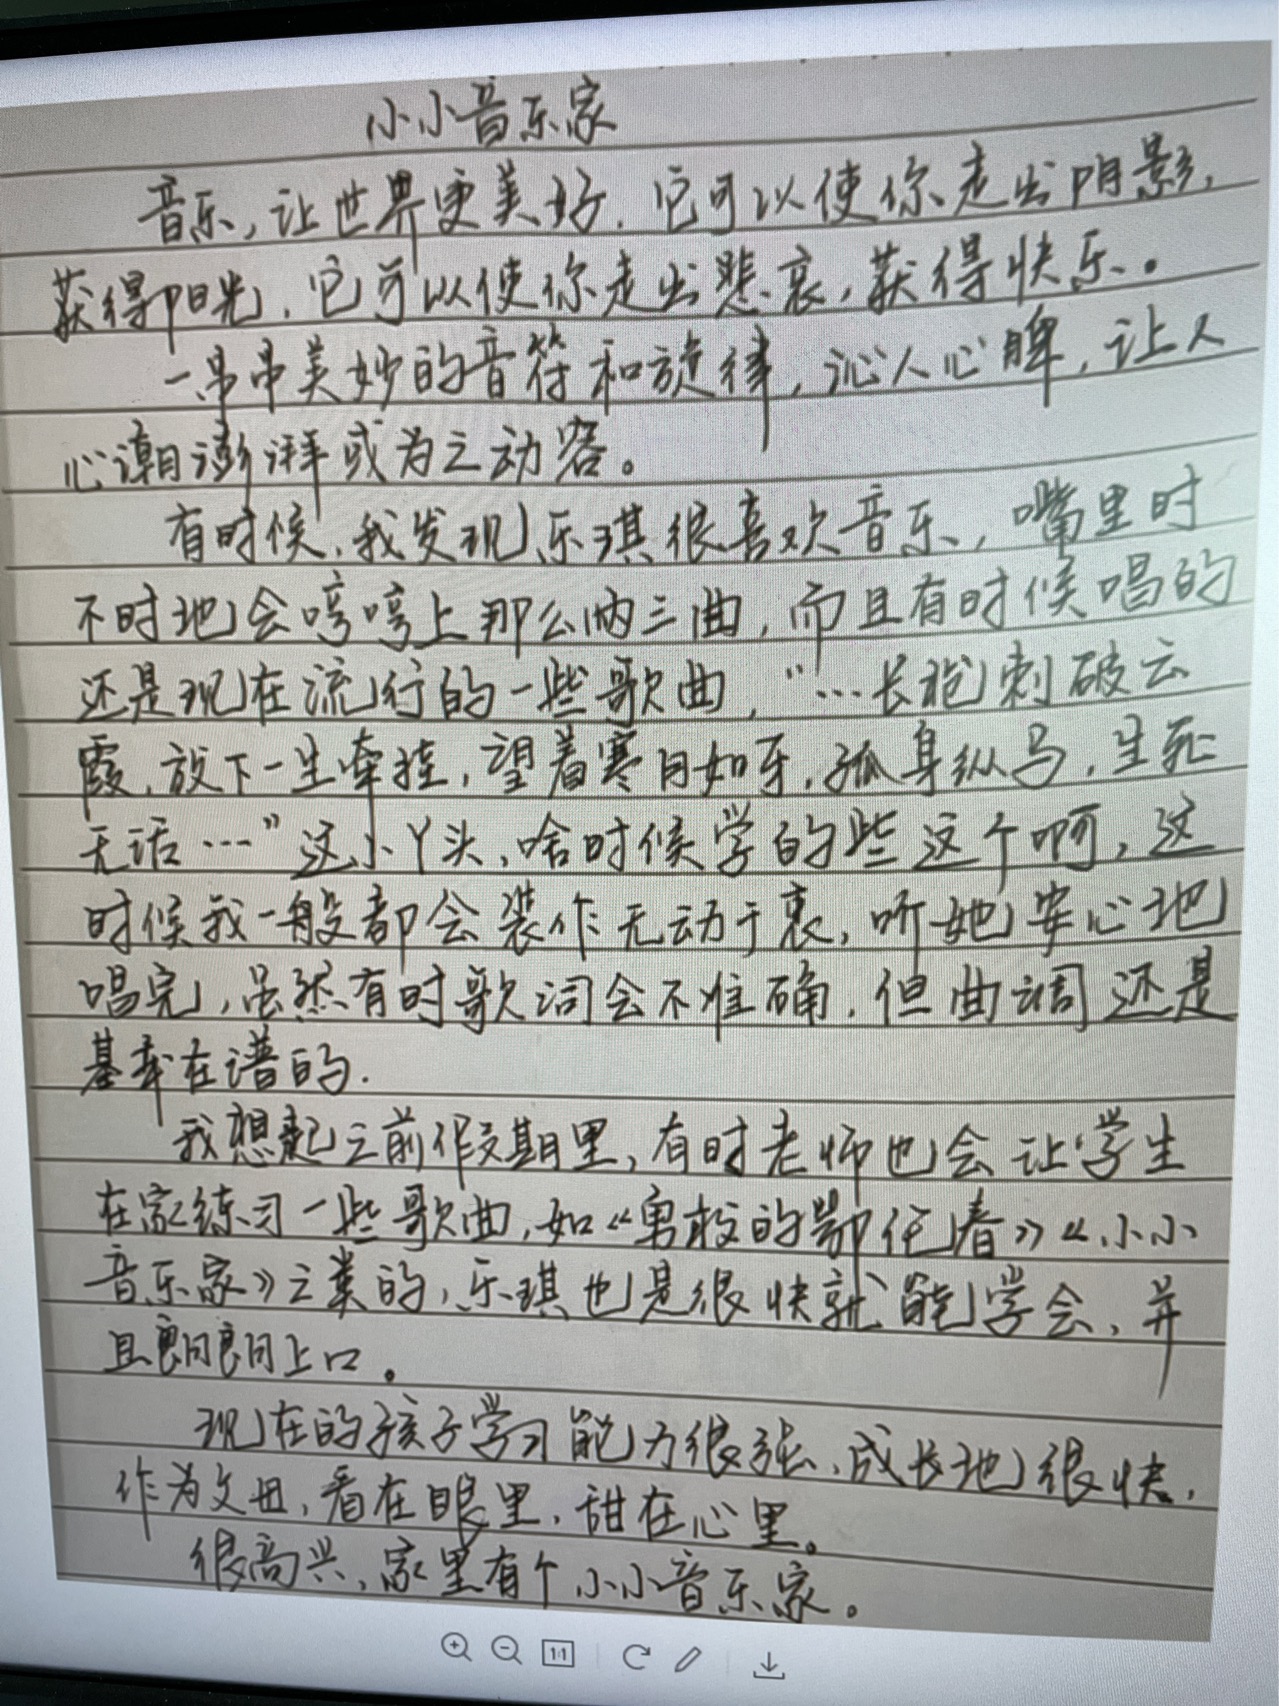 小小音乐家
音乐,让世界更美好.它可以使你走出阴影,
获得阳光,它可以使你走出悲哀,获得快乐。
一串串美妙的音符和旋律,沁人心脾,让人
心潮澎湃或为之动容。
有时候,我发现乐琪很喜欢音乐,嘴里时
不时地会哼哼上那么两三曲,而且有时候唱的
还是现在流行的一些歌曲,“…长枪刺破云
霞,放下一生牵挂,望着寒月如牙,孤身纵马,生死
无话…”这小丫头,啥时候学的些这个啊,这
时候我一般都会装作无动于衷,听她安心地
唱完,虽然有时歌词会不准确,但曲调还是
基本在谱的.
我想起之前假期里,有时老师也会让学生
在家练习一些歌曲,如《勇敢的鄂伦春》《小小
音乐家》之类的,乐琪也是很快就能学会,并
且朗朗上口。
现在的孩子学习能力很强,成长地很快,
作为父母,看在眼里,甜在心里。
很高兴,家里有个小小音乐家。
1:1